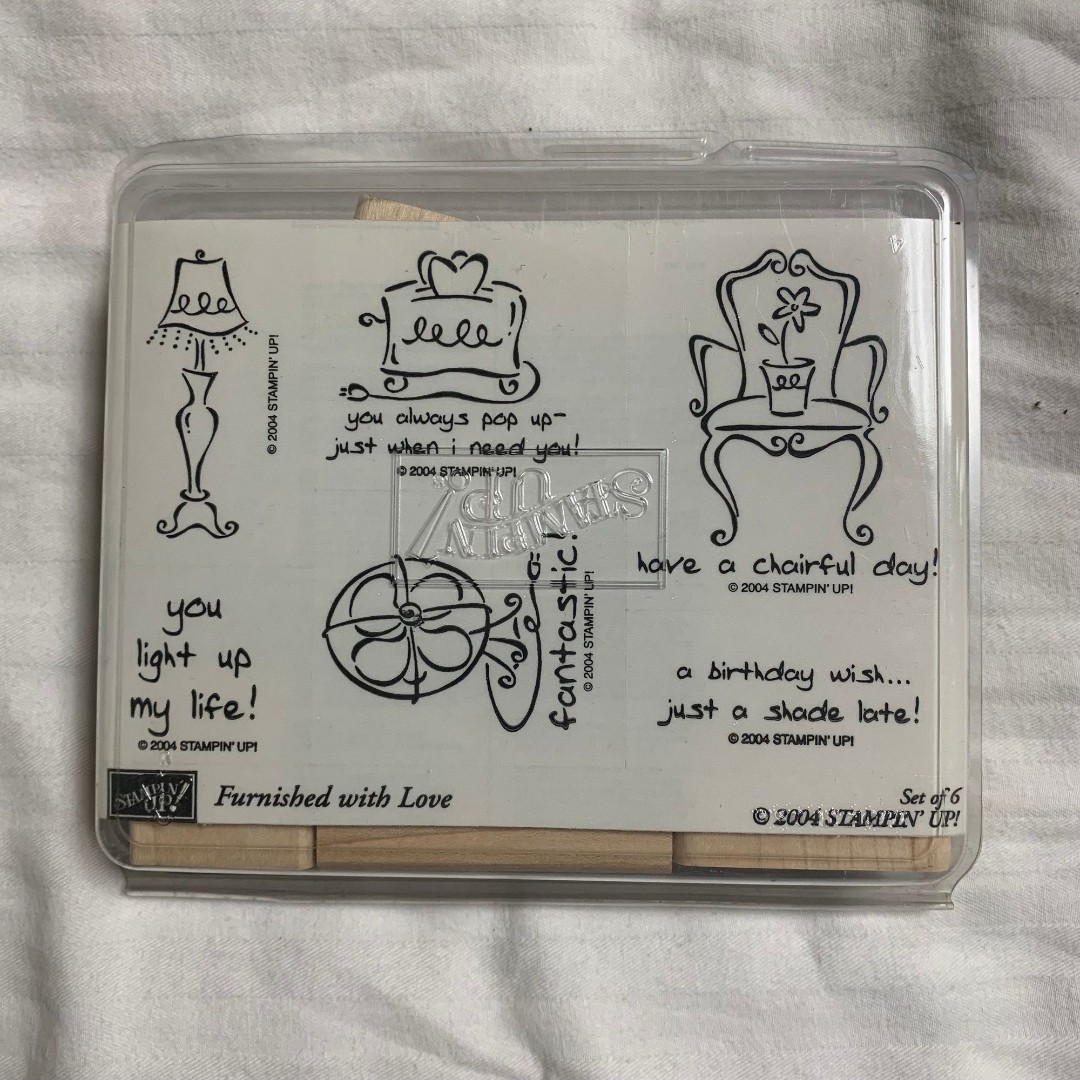 © 2004 STAMPIN' UP!
you always pop up-
just when i need you!
© 2004 STAMPIN' UP!
have a chairful day!
© 2004 STAMPIN' UP!
STAMPIN'
UP!
fantastic!
© 2004 STAMPIN' UP!
you
light up
my life!
© 2004 STAMPIN' UP!
a birthday wish...
just a shade late!
© 2004 STAMPIN' UP!
STAMPIN'
UP!
Furnished with Love
Set of 6
© 2004 STAMPIN' UP!